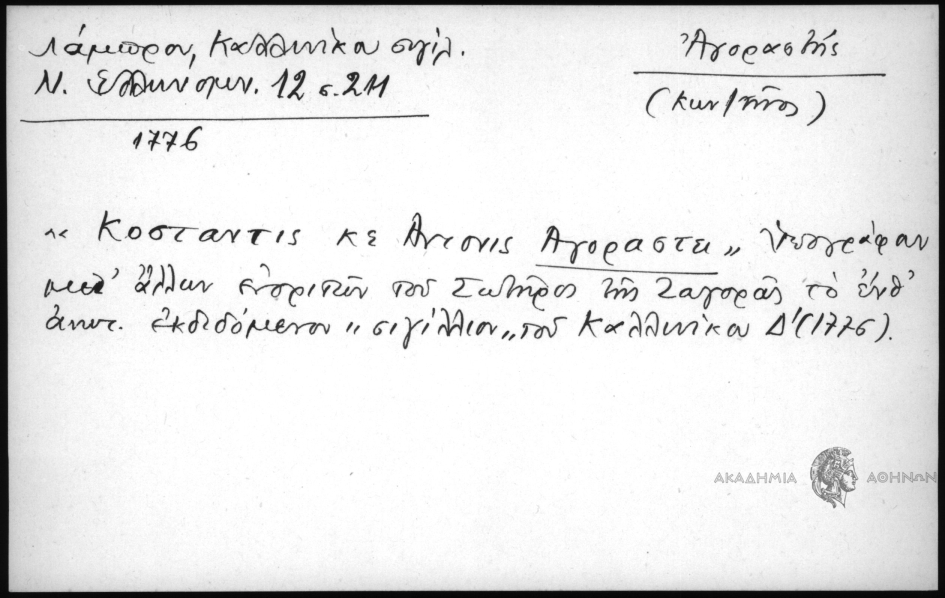 Λάμπρου, Καλλινίκου σιγίλ.
Ν. Ελληνομν. 12 σ. 211
1776
Ἀγοραστής
(Κων/τῖνος)
“ Κοσταντις κε Αντονις Αγοραστε „ ὑπογράφουν
μετ' ἄλλων ἐνοριτῶν τοῦ Σωτῆρος τῆς Ζαγορᾶς τὸ ἐνθ'
ἀνωτ. ἐκδιδόμενον „ σιγίλλιον „ τοῦ Καλλινίκου Δ' (1776).
ΑΚΑΔΗΜΙΑ ΑΘΗΝΩΝ